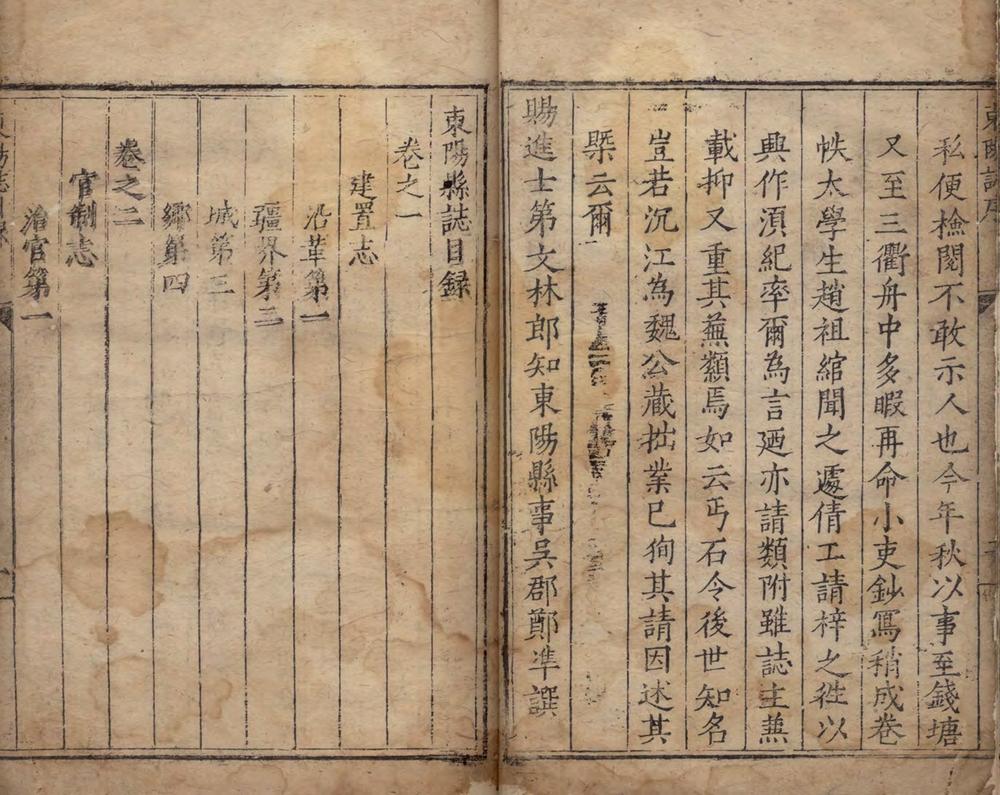 東陽誌序
私便檢閱不敢示人也今年秋以事至錢塘
又至三衢舟中多暇再命小吏鈔寫稍成卷
帙太學生趙祖綰聞之遽倩工請梓之徃以
興作湏紀率爾為言廼亦請類附雖誌主蕪
載抑又重其蕪纇焉如云丐石令後世知名
豈若沉江為魏公蔵拙業已徇其請因述其
槩云爾
賜進士第文林郎知東陽縣事吳郡鄭凖譔
東陽縣誌目録
卷之一
建置志
沿革第一
疆界第二
城第三
鄉第四
卷之二
官制志
治官第一